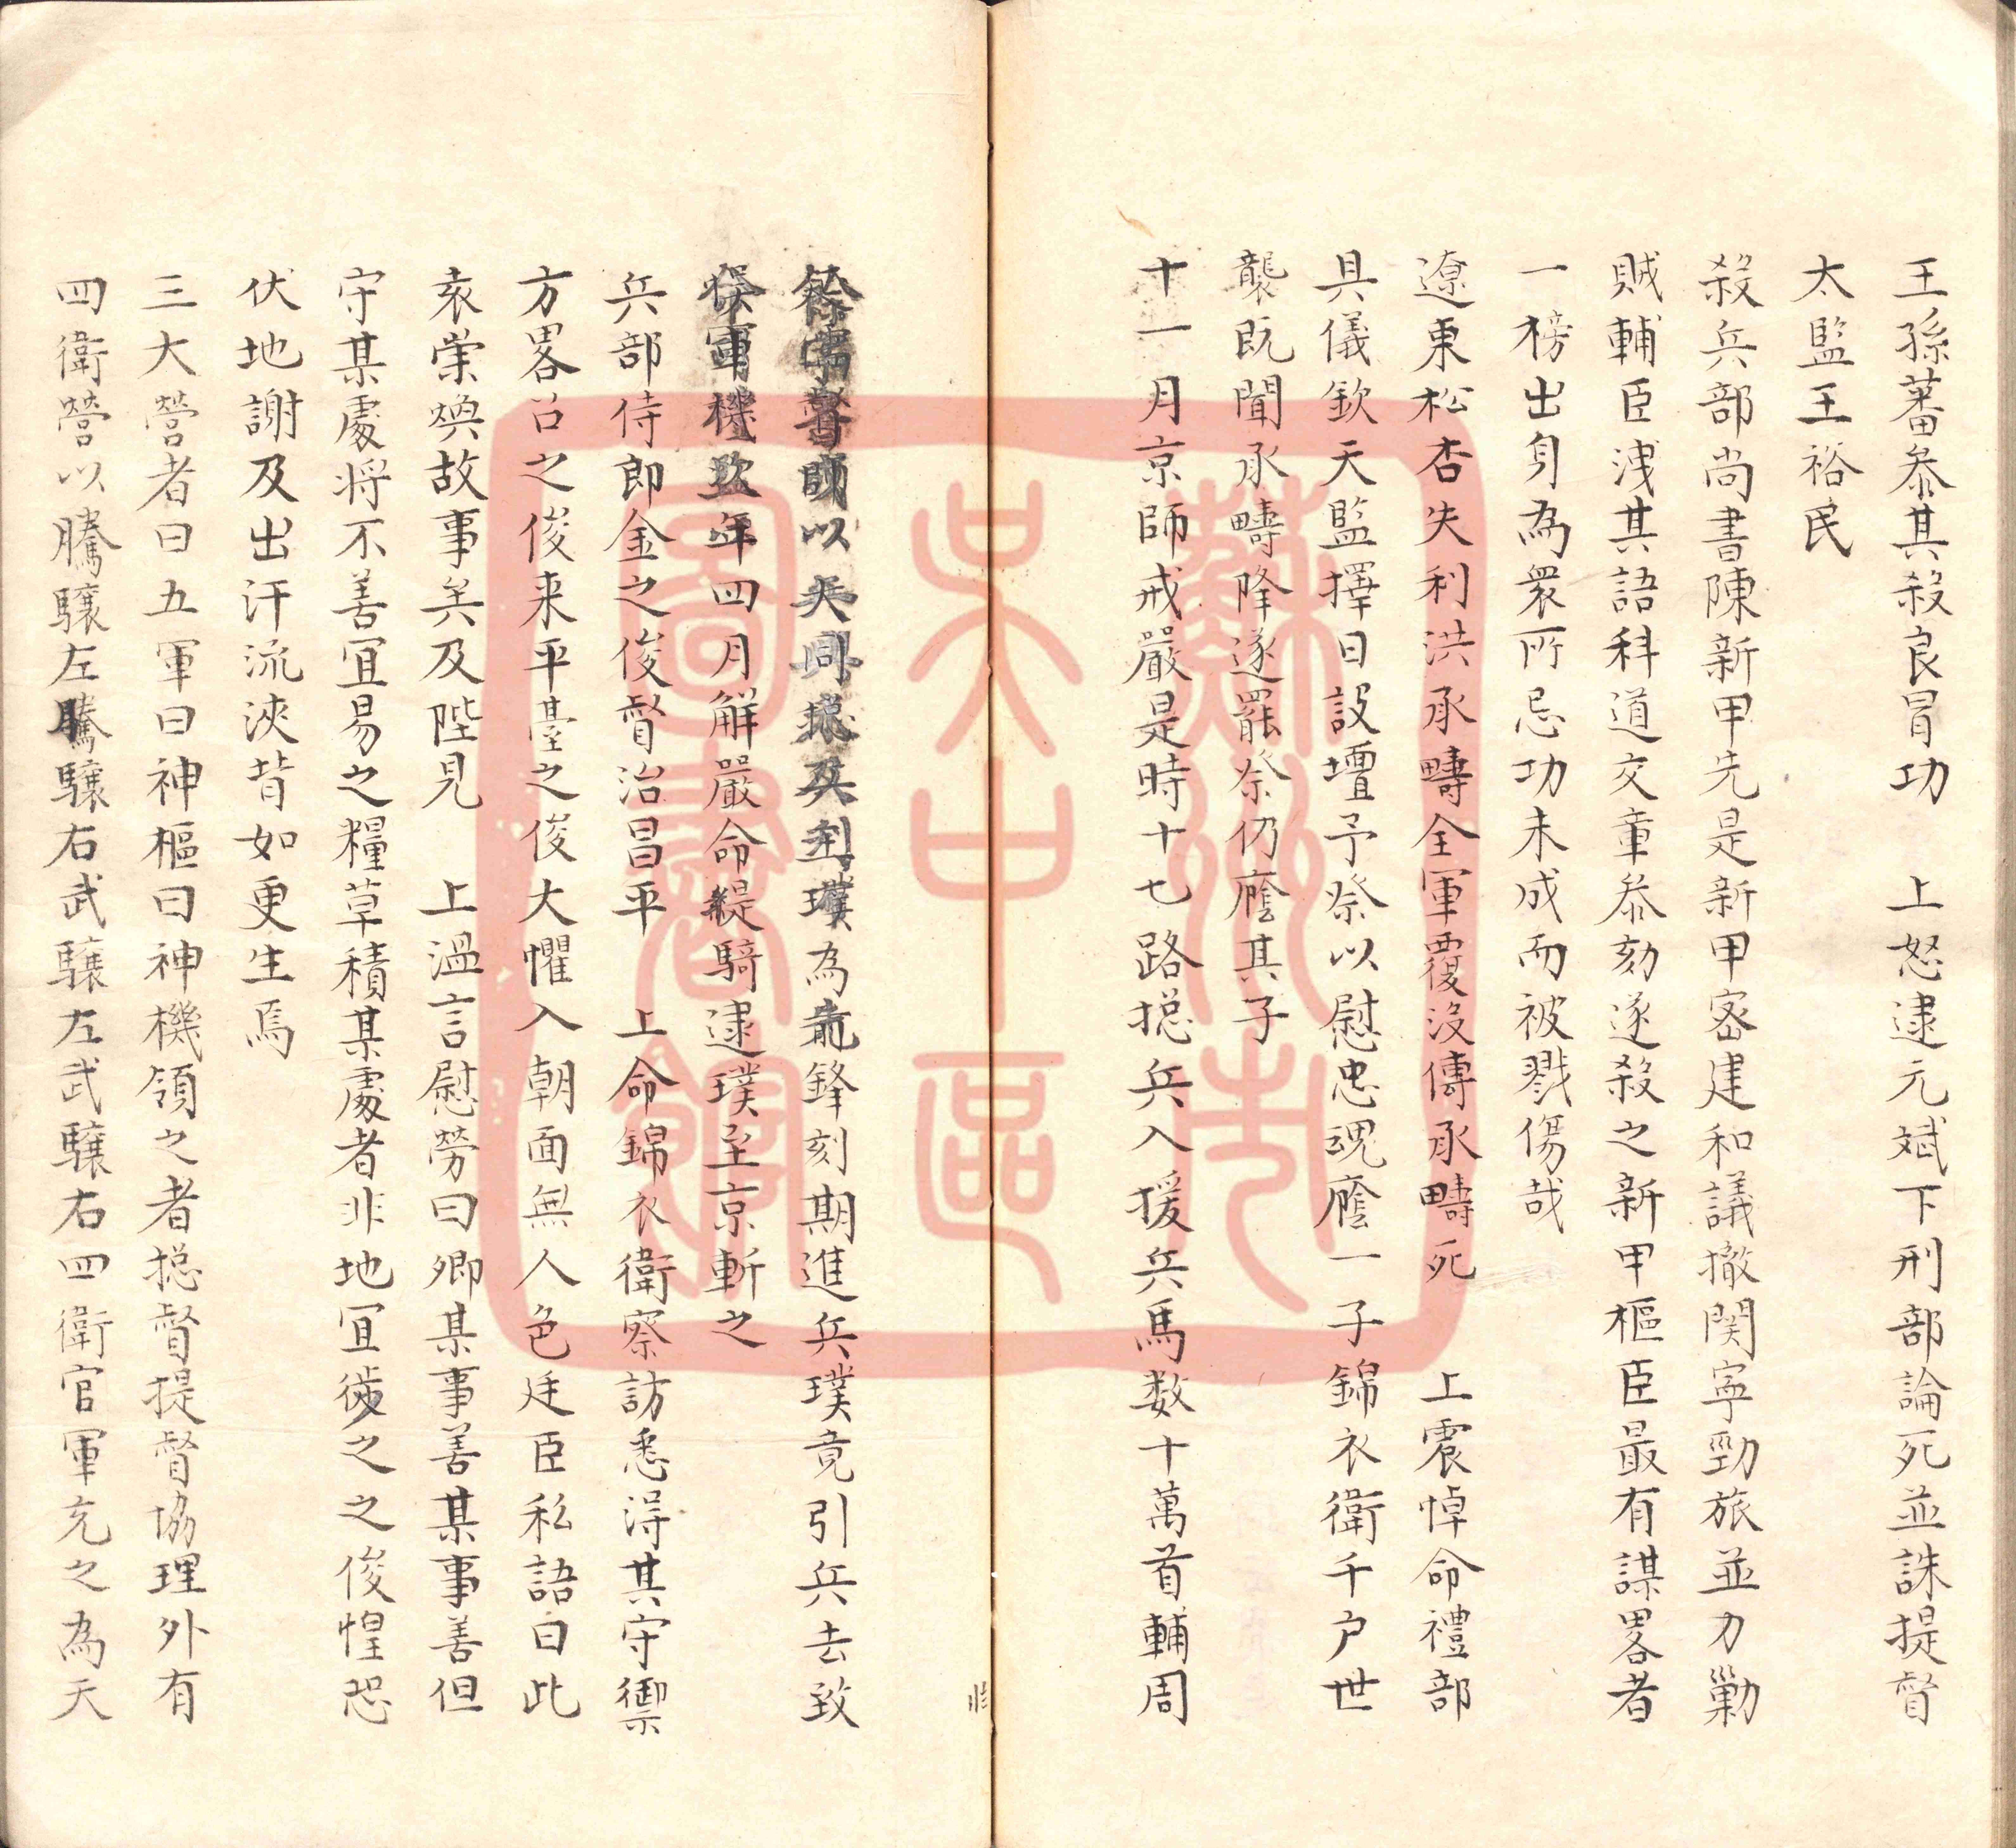 王孫蕃叅其殺良冒功　上怒逮元斌下刑部論死並誅提督
太監王裕民
殺兵部尚書陳新甲先是新甲密建和議撤関寧勁旅並力勦
賊輔臣洩其語科道交章叅劾遂殺之新甲樞臣最有謀畧者
一榜出身為衆所忌功未成而被戮傷哉
遼東松杏失利洪承疇全軍覆没傳承疇死　上震悼命禮部
具儀欽天監擇日設壇予祭以慰忠魂廕一子錦衣衛千户世
襲既聞承疇降遂罷祭仍廕其子
十一月京師戒嚴是時十七路摠兵入援兵馬数十萬首輔周
督師以為龍鋒刻期進兵璞竟引兵去致
軍機年四月解嚴命緹騎逮璞至京斬之
兵部侍郎金之俊督治昌平　上命錦衣衛察訪悉得其守禦
方畧召之俊来平臺之俊大懼入朝面無人色廷臣私語白此
袁崇煥故事矣及陛見　上温言慰勞曰卿某事善某事善但
守某處将不善宜易之糧草積某處者非地宜徙之之俊惶恐
伏地謝及出汗流浹背如更生焉
三大營者曰五軍曰神樞曰神機領之者摠督提督協理外有
四衛營以騰驤左騰驤右武驤左武驤右四衛官軍充之為天
蘇州市
吴中區
圖書館